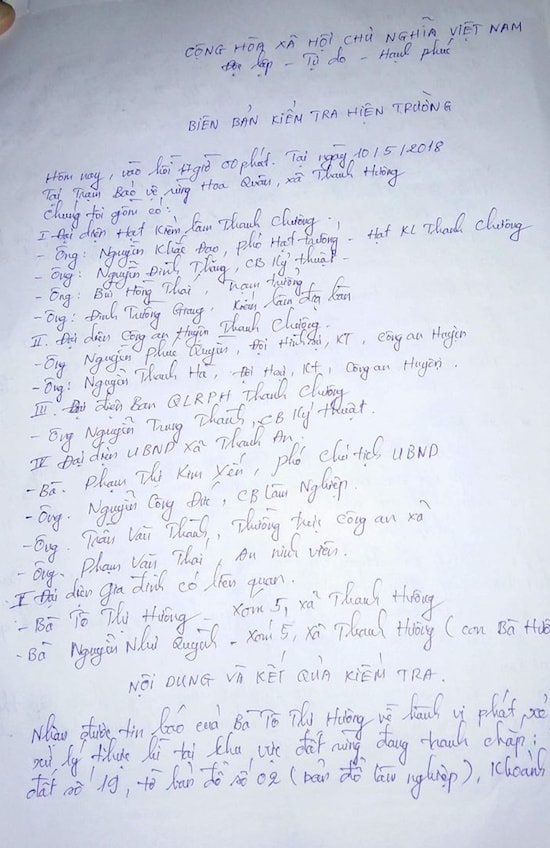 CỘNG HÒA XÃ HỘI CHỦ NGHĨA VIỆT NAM
Độc lập - Tự do - Hạnh phúc
BIÊN BẢN KIỂM TRA HIỆN TRƯỜNG
Hôm nay, vào hồi giờ 00 phát. Tại ngày 10/5/2018
Tại Trạm Bảo vệ rừng Hoa Quân, xã Thanh Hương
Chúng tôi gồm có:
I Đại diện Hạt Kiểm lâm Thanh Chương:
- Ông: Nguyễn Khắc Đạo, phó Hạt trưởng - Hạt KL Thanh Chương
- Ông: Nguyễn Đình Thắng, CB Kỹ thuật -
- Ông: Bùi Hồng Thái, trạm trưởng
- Ông: Đinh Trường Giang, Kiểm lâm địa bàn
II. Đại diện Công an Huyện Thanh Chương.
- Ông Nguyễn Phúc Quyền, Đội Hình sự, KT, công an Huyện
- Ông: Nguyễn Thanh Hà, Đội KT, Công an Huyện.
III - Đại diện Ban QLRPH Thanh Chương
- Ông Nguyễn Trung Thành, CB Kỹ thuật.
IV Đại diện UBND Xã Thanh An.
- Bà. Phạm Thị Kim Yến, phó chủ tịch UBND
- Ông. Nguyễn Công Đức, CB Lâm Nghiệp.
- Ông. Trần Văn Thành, Thường trực công an xã
- Ông. Phạm Văn Thái, An ninh viên.
V Đại diện Gia đình có liên quan.
- Bà Tô Thị Hường - Xóm 5, xã Thanh Hương
- Bà Nguyễn Như Quỳnh - Xóm 5, xã Thanh Hương (con Bà Hườ
NỘI DUNG VÀ KẾT QUẢ KIỂM TRA.
Nhận được tin báo của Bà Tô Thị Hường về hành vi phát, xẻ
xử lý thực bì tại khu vực đất rừng đang tranh chấp:
đất số 19, tờ bản đồ số 02 (bản đồ lâm nghiệp), Khoảnh